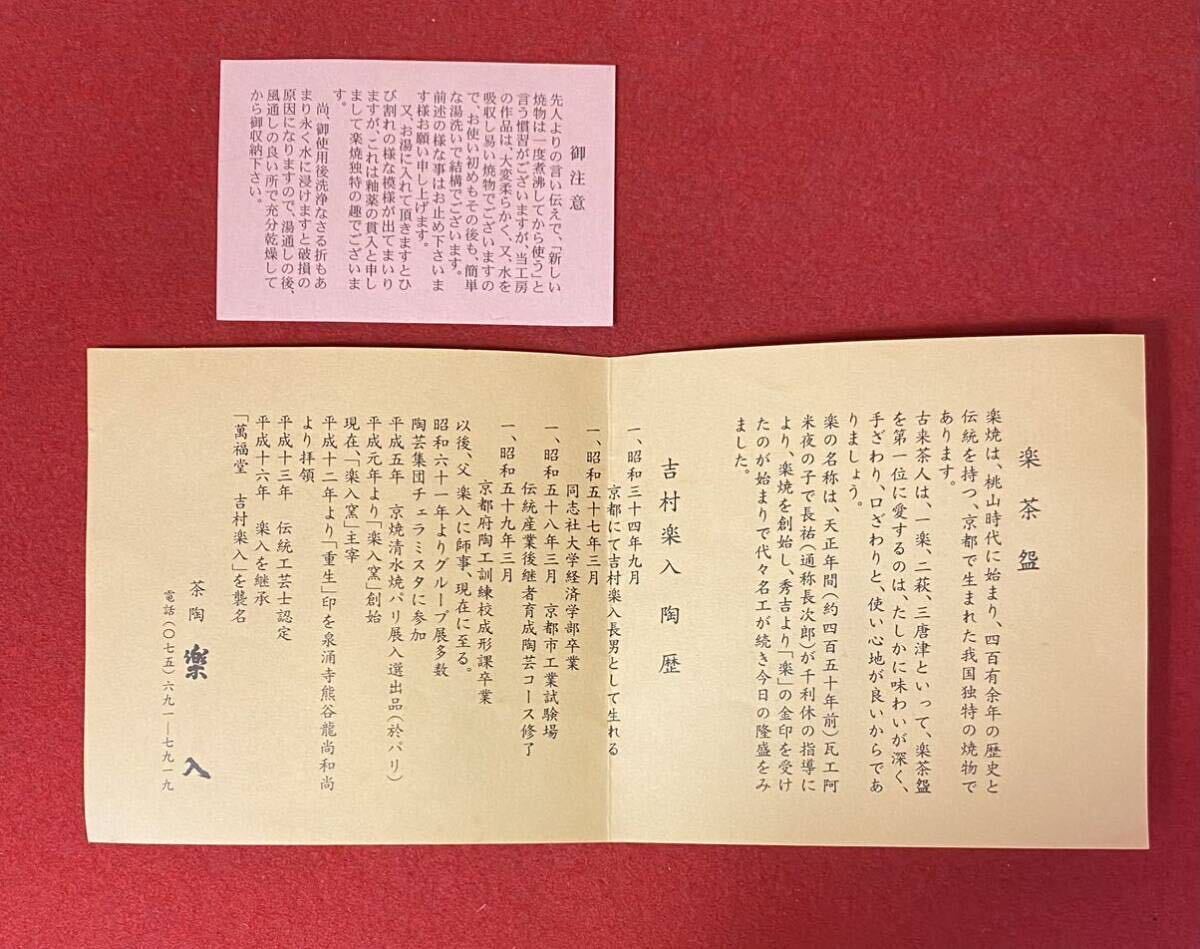 御注意
先人よりの言い伝えで、「新しい
焼物は一度煮沸してから使う」と
言う慣習がございますが、当工房
の作品は、大変柔らかく、又、水を
吸収し易い焼物でございますの
で、お使い初めもその後も、簡単
な湯洗いで結構でございます。
前述の様な事はお止め下さいま
す様お願い申し上げます。
又、お湯に入れて頂きますとひ
び割れの様な模様が出てまいり
ますが、これは釉薬の貫入と申し
まして楽焼独特の趣でございま
す。
尚、御使用後洗浄なさる折もあ
まり永く水に浸けますと破損の
原因になりますので、湯通しの後、
風通しの良い所で充分乾燥して
から御収納下さい。
楽茶盌
楽焼は、桃山時代に始まり、四百有余年の歴史と
伝統を持つ、京都で生まれた我国独特の焼物で
あります。
古来茶人は、一楽、二萩、三唐津といって、楽茶盌
を第一位に愛するのは、たしかに味わいが深く、
手ざわり、口ざわりと、使い心地が良いからであ
りましょう。
楽の名称は、天正年間(約四百五十年前)瓦工阿
米夜の子で長祐(通称長次郎)が千利休の指導に
より、楽焼を創始し、秀吉より「楽」の金印を受け
たのが始まりで代々名工が続き今日の隆盛をみ
ました。
吉村楽入 陶歴
一、昭和三十四年九月
京都にて吉村楽入長男として生れる
一、昭和五十七年三月
同志社大学経済学部卒業
一、昭和五十八年三月 京都市工業試験場
伝統産業後継者育成陶芸コース修了
一、昭和五十九年三月
京都府陶工訓練校成形課卒業
以後、父 楽入に師事、現在に至る。
昭和六十一年よりグループ展多数
陶芸集団チェラミスタに参加
平成五年 京焼清水焼パリ展入選出品(於パリ)
平成元年より「楽入窯」創始
現在、「楽入窯」主宰
平成十二年より「重生」印を泉涌寺熊谷龍尚和尚
より拝領
平成十三年 伝統工芸士認定
平成十六年 楽入を継承
「萬福堂 吉村楽入」を襲名
茶陶 楽入
電話(〇七五)六九一―七九一九